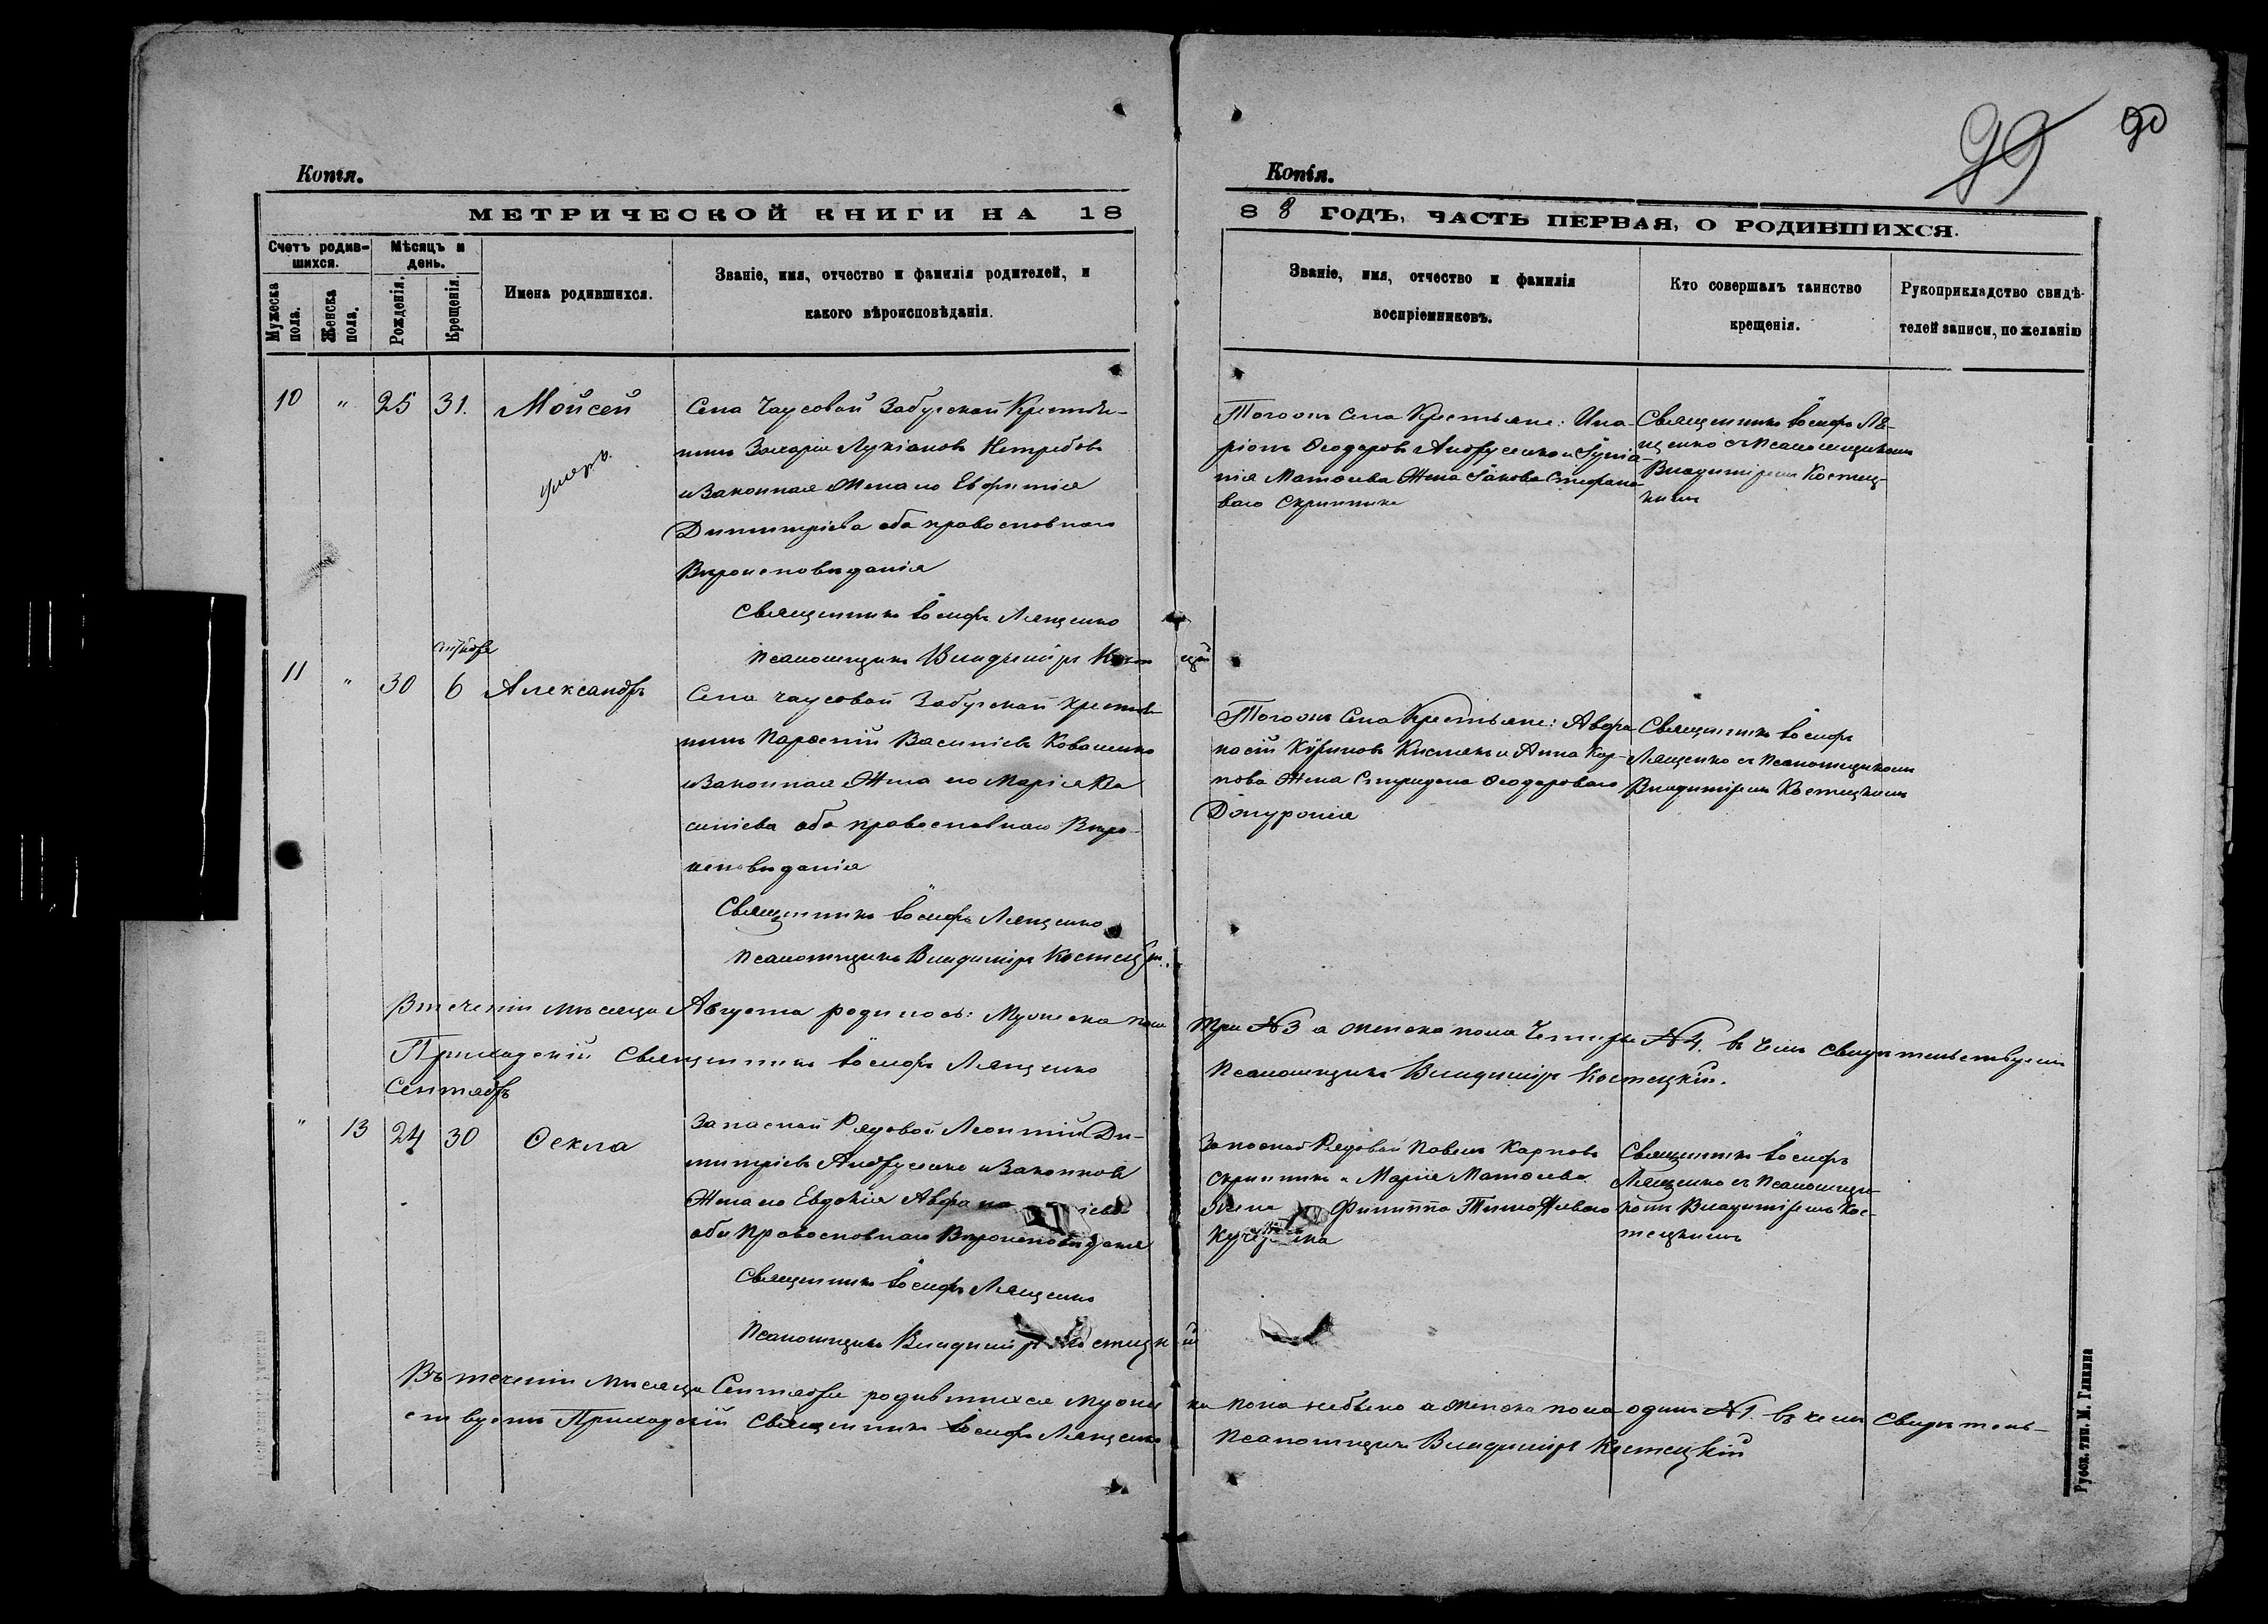 99 90
Копія.
МЕТРИЧЕСКОЙ КНИГИ НА 18
Счетъ родив-
шихся.
Мѣсяцъ и
день.
Мужеска
пола.
Женска
пола.
Рожденія.
Крещенія.
Имена родившихся.
Званіе, имя, отчество и фамилія родителей, и
какого вѣроисповѣданія.
Копія.
88 ГОДЪ, ЧАСТЬ ПЕРВАЯ, О РОДИВШИХСЯ.
Званіе, имя, отчество и фамилія
воспріемниковъ.
Кто совершалъ таинство
крещенія.
Рукоприкладство свидѣ-
телей записи, по желанію
10 " 25 31. Мойсей
умеръ.
Села Чаусовой Забугской Крестья-
нинъ Захарія Лукіановъ Нетребовъ
и Законная Жена его Евфимія
Димитріева оба православнаго
Вѣроисповѣданія
Священникъ Іосифъ Лященко
Псаломщикъ Владиміръ
Тогожъ Села Крестьяне: Ила-
ріонъ Ѳеодоровъ Андрусенко и Іуліа-
нія Матѳіева Жена Іакова Стефано-
ваго Скрипника
Священникъ Іосифъ Ля-
щенко съ Псаломщикомъ
Владиміромъ Костец-
кимъ
11 " 30 6 Александръ
Села Чаусовой Забугской Крестья-
нинъ Парѳеній Василіевъ Коваленко
и Законная Жена его Марія Ва
силіева оба православнаго Вѣро-
исповѣданія
Священникъ Іосифъ Лященко
Псаломщикъ Владиміръ
Тогожъ Села Крестьяне: Авфа
насій Кириловъ и Анна Кар-
пова Жена Спиридона Ѳеодороваго
Священникъ Іосифъ
Лященко съ Псаломщикомъ
Владиміромъ Костецкимъ
Втеченіи мѣсяца Августа родилось: Мужеска пола три №3 а женска пола Четыре №4. въ чемъ свидѣтельствуемъ
Приходскій Священникъ Іосифъ Лященко Псаломщикъ Владиміръ Костецкій.
Сентябрь
" 13 24 30 Ѳекла
Запасной Рядовой Леонтій Ди-
митріевъ Андрусенко и Законная
Жена его Евдокія
оба Православнаго Вѣроисповѣданія
Священникъ Іосифъ Лященко
Псаломщикъ Владиміръ Костецкій
Запасной Рядовой Павелъ Карповъ
Скрипникъ и Марія Матѳіева
Жена Филиппа Тимоѳіеваго
Священникъ Іосифъ
Лященко съ Псаломщи-
комъ Владиміромъ Кос-
тецкимъ
Въ теченіи мѣсяца Сентября родившихся мужеска пола небыло а женска пола одинъ №1. въ чемъ Свидѣтель-
ствуемъ Приходскій Священникъ Іосифъ Лященко Псаломщикъ Владиміръ Костецкій
Русск. тип. М. Глинна